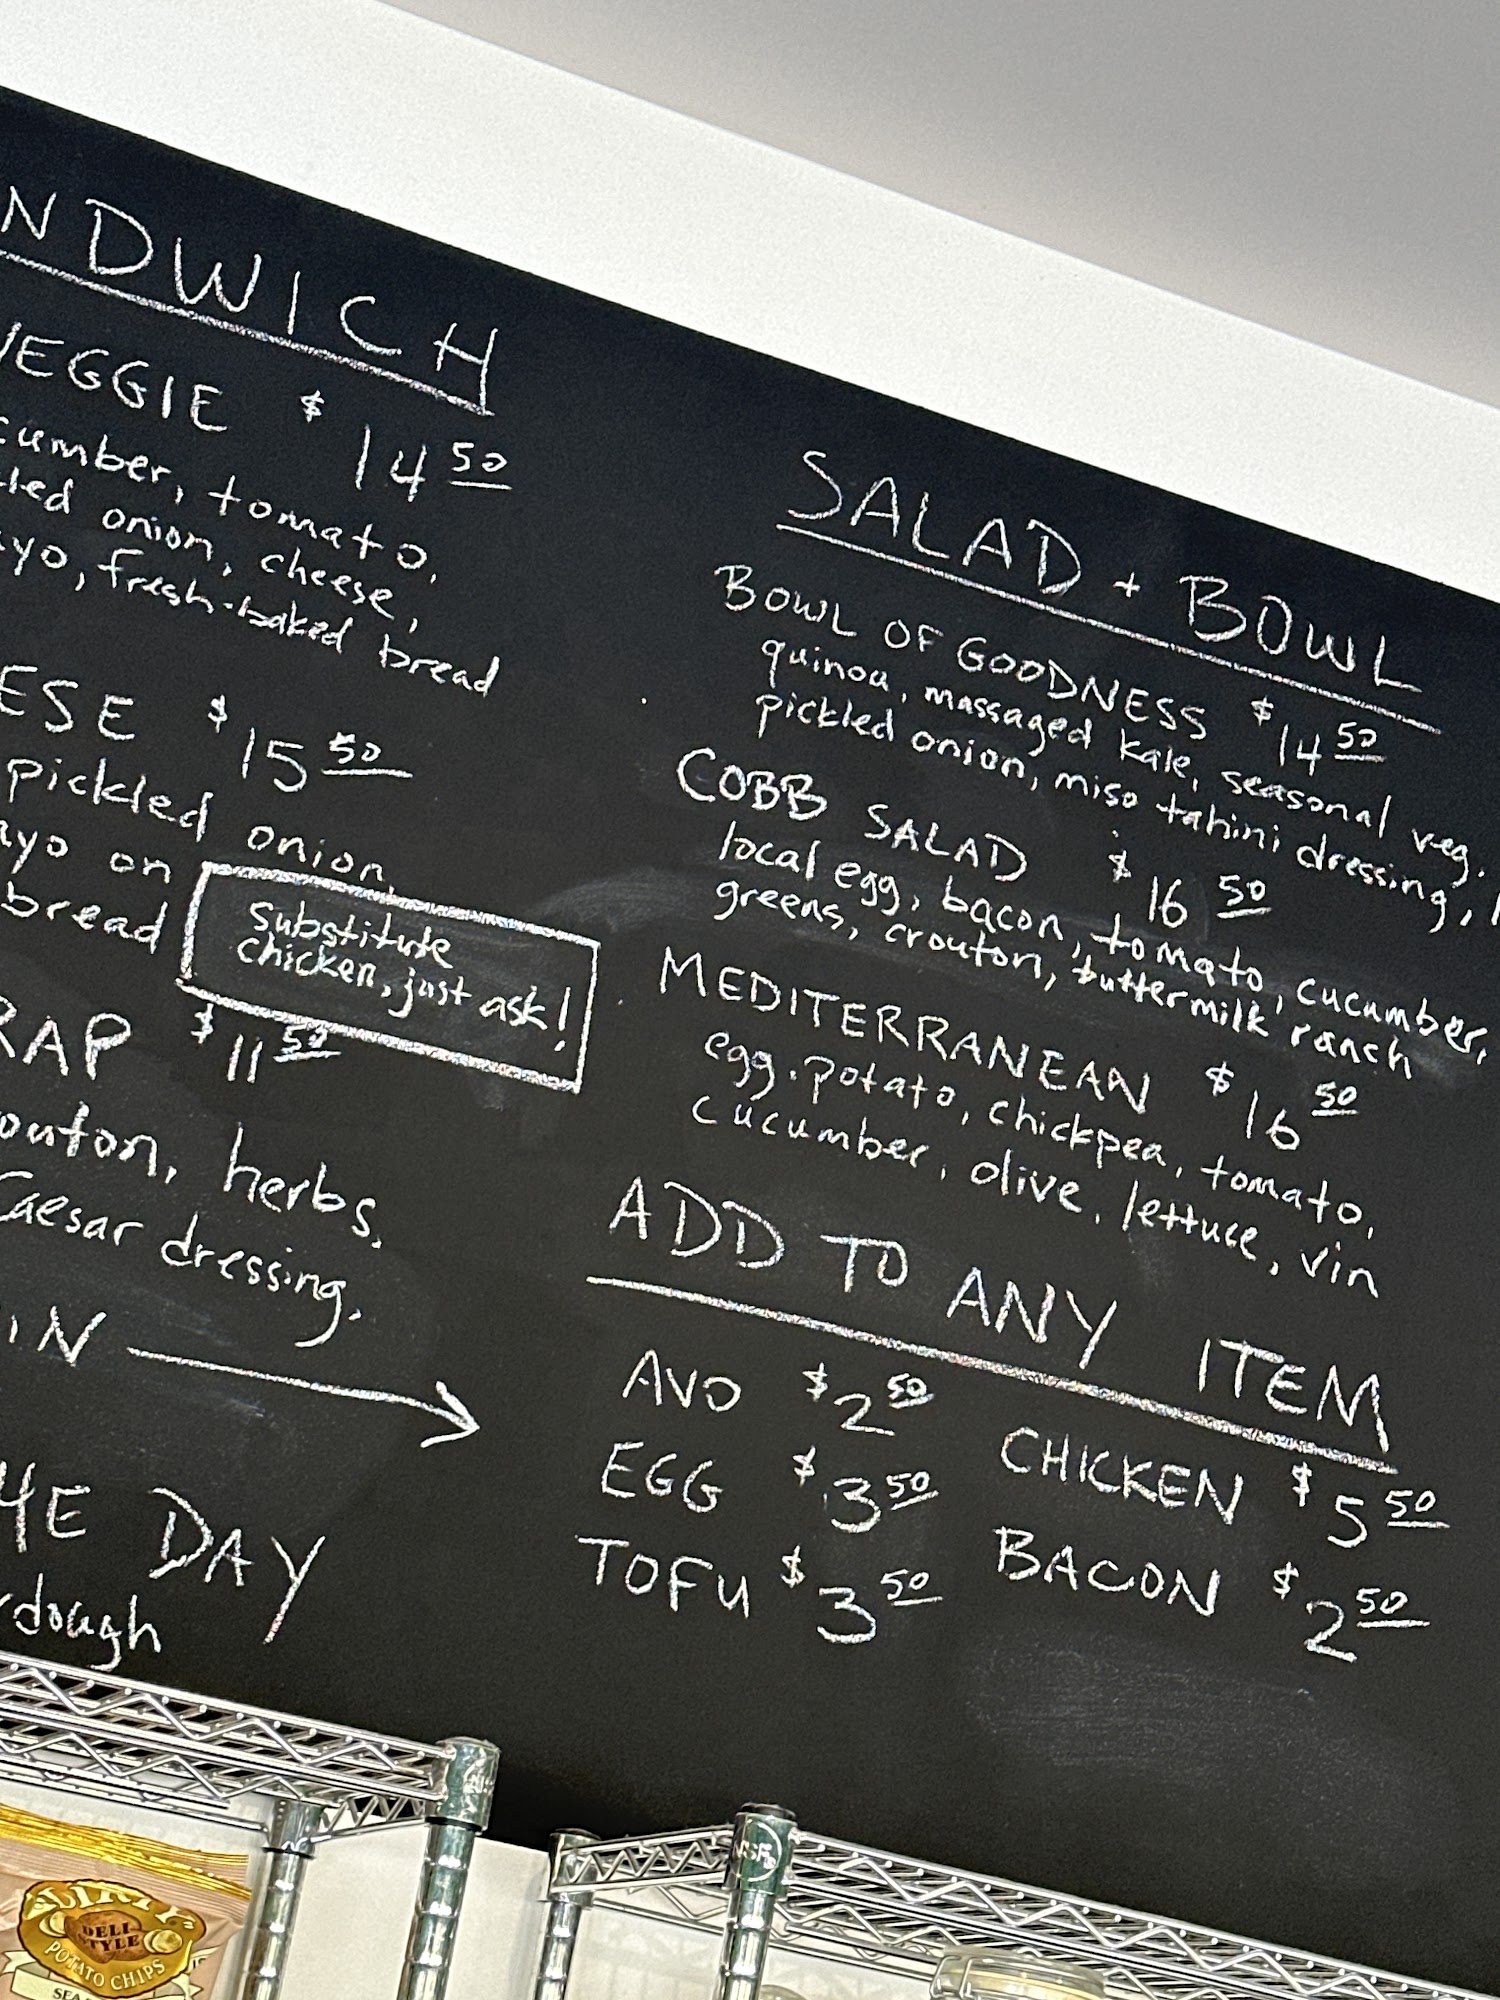 NDWICH
VEGGIE $14 50
cumber, tomato,
onion, cheese,
fresh-baked bread
$15 50
pickled onion,
on
bread
Substitute
chicken, just ask!
$11 50
herbs,
Caesar dressing,
DAY
SALAD + BOWL
BOWL OF GOODNESS $14 50
quinoa, massaged kale, seasonal veg.
pickled onion, miso tahini dressing,
COBB SALAD $16 50
local egg, bacon, tomato, cucumber,
greens, crouton, buttermilk ranch
MEDITERRANEAN $16 50
egg. potato, chickpea, tomato,
cucumber, olive, lettuce, vin
ADD TO ANY ITEM
AVO $2 50
EGG $3 50
TOFU $3 50
CHICKEN $5 50
BACON $2 50
DELI
STYLE
POTATO CHIPS